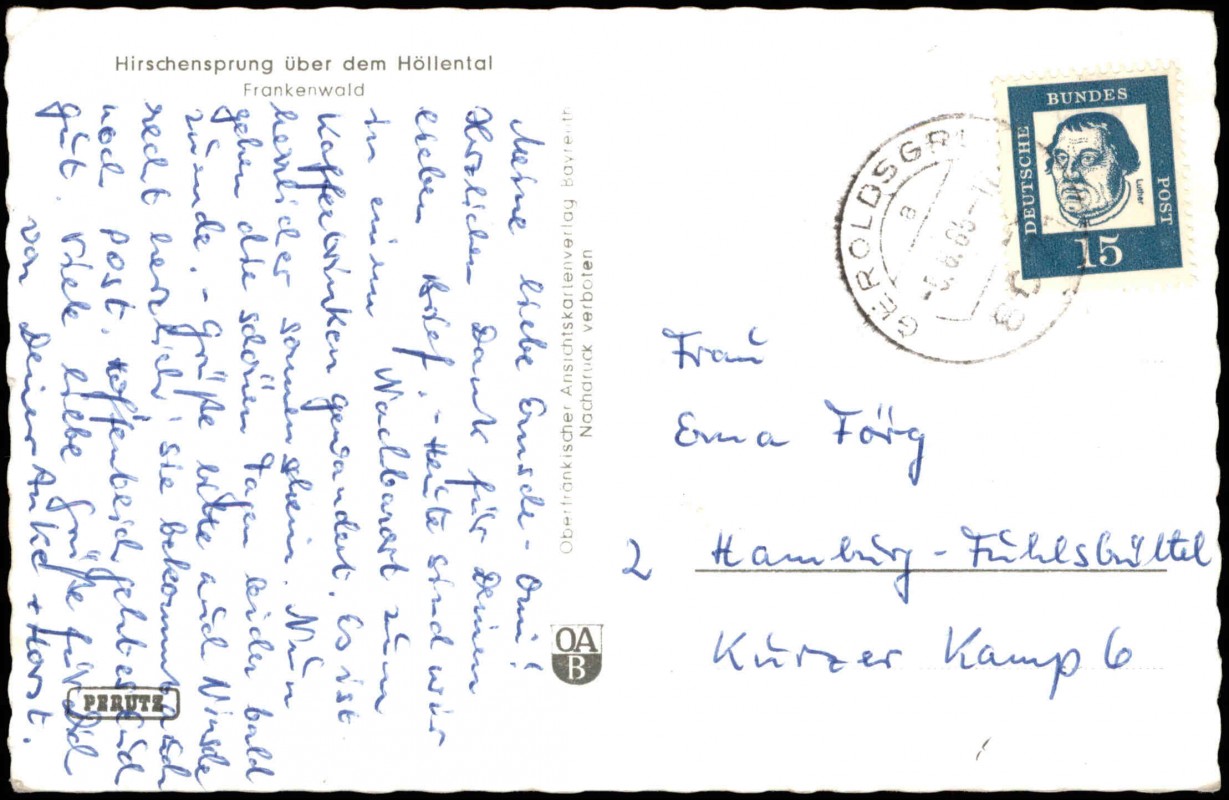 Hirschensprung über dem Höllental
Frankenwald
Meine liebe Omsche-Omi!
Herzlichen Dank für Deinen
lieben Brief. - Heute sind wir
in einem Nachbarort zum
Kaffeetrinken gewandert. Es ist
herrlicher Sonnenschein. Nun
gehen die schönen Tage leider bald
zuende. - Grüße bitte auch
recht herzlich, sie bekommt auch
noch Post. Hoffentlich geht es Euch
gut. Viele liebe Grüße für Dich
von Deiner Anke + Horst.
PERUTZ
Oberfränkischer Ansichtskartenverlag Bayreuth
Nachdruck verboten
OA
B
GEROLDSGR
a
DEUTSCHE
BUNDES
POST
Luther
15
Frau
Erna Förg
2 Hamburg-Fuhlsbüttel
Kurzer Kamp 6